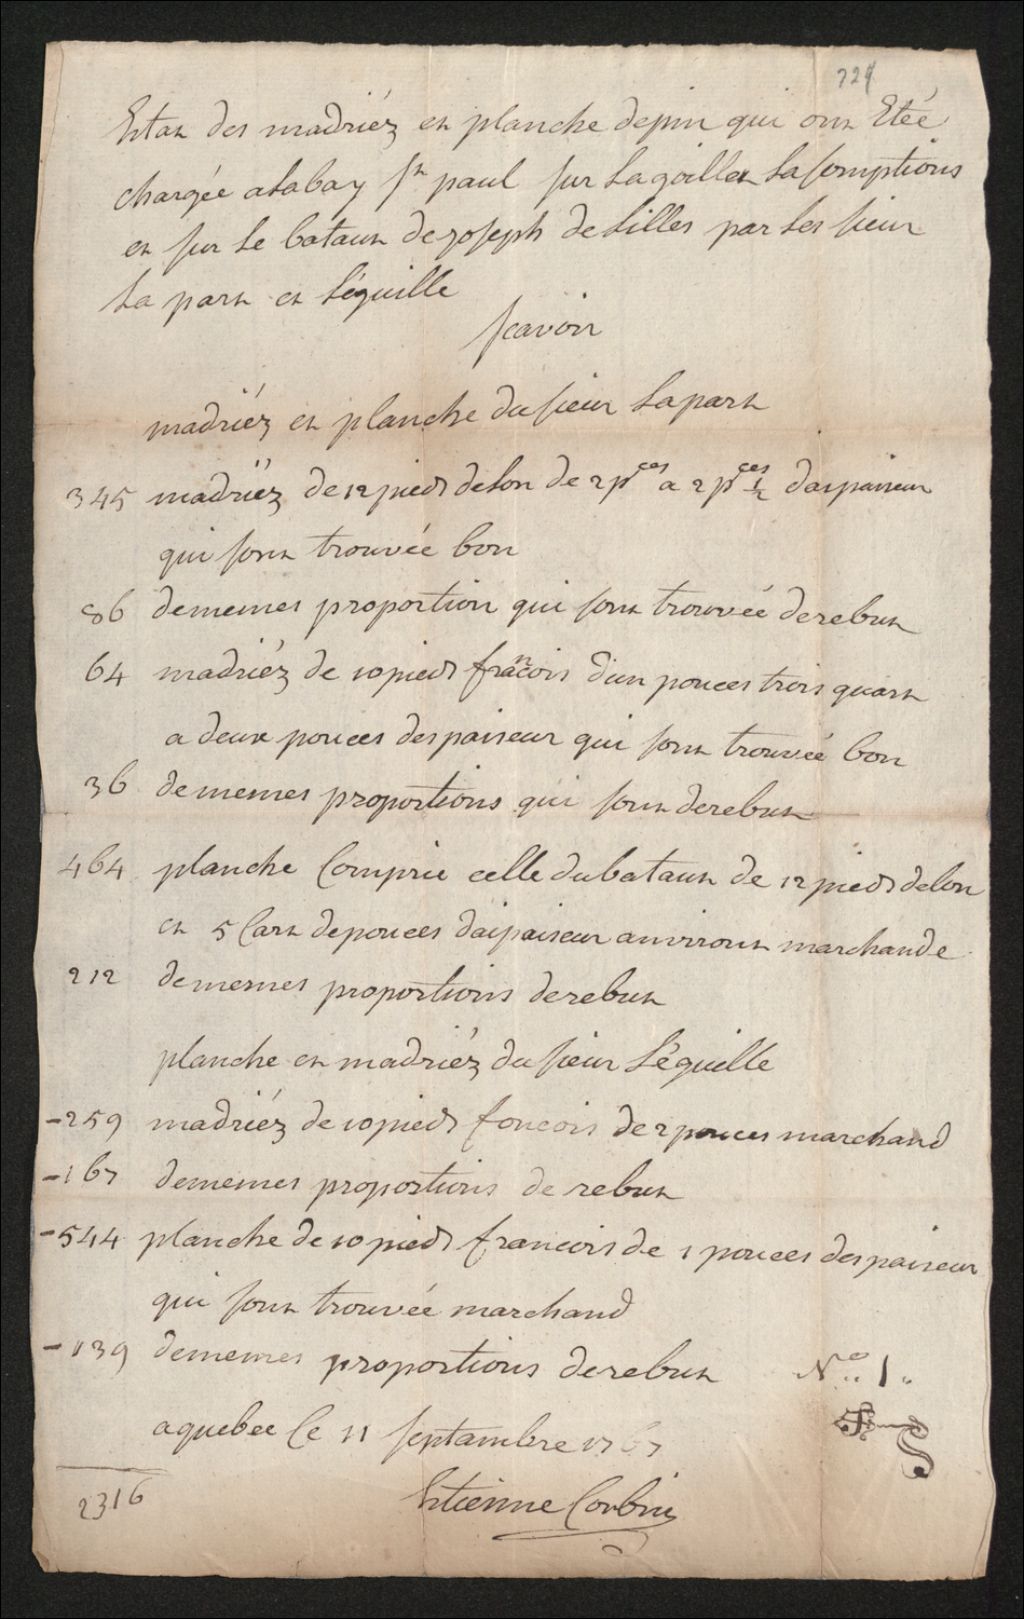 724
Estat des madriéz et planche depin qui ont Etée
chargée alabay st paul sur La goillet Lasomptions
et sur Le bataux de joseph deLilles par Les sieur
La part et Léguille
scavoir
madriéz et planche du sieur Lapart
345 madriéz de 12 pieds delon de 2 pces a 2 pces 1/2 daispaiseur
qui sont trouvée bon
86 dememes proportion qui sont trouvée derebut
64 madriéz de 10 pieds francois d'un pouces trois quart
a deux pouces despaiseur qui sont trouvée bon
36 dememes proportions qui sont derebut
464 planche Comprie celle du bataux de 12 pieds delon
et 5 Cart depouces daipaiseur anviront marchande
212 dememes proportions derebut
planche et madriéz du sieur Léguille
-259 madriéz de 10 pieds foncois de 2 pouces marchand
-167 dememes proportions de rebut
-544 planche de 10 pieds francois de 1 pouces despaiseur
qui sont trouvée marchand
-139 dememes proportions derebut
No.. 1..
aquebec Ce 11 septambre 1767
2316
Etienne Corbin